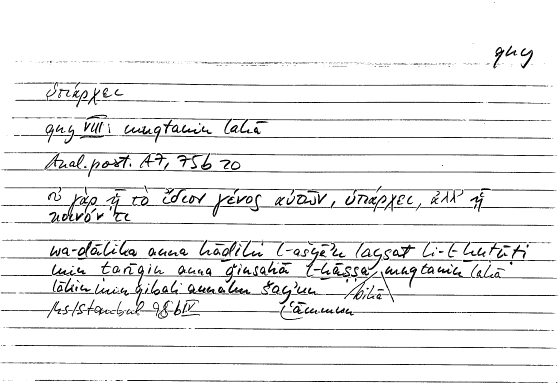 qrn
ὑπάρχει
qrn VIII: muqtarin lahā
Anal. post. A7, 75b 20
οὐ γὰρ ᾗ τὸ ἴδιον γένος αὐτῶν, ὑπάρχει, ἀλλ' ᾗ
κοινόν τι
wa-ḏālika anna hāḏihi l-ašyāʾa laysat li-l-ḫuṭūṭi
min ṭarīqin anna ǧinsahā l-ḫāṣṣa muqtarin lahā
lākin min qibali annahu šayʾun bihā
Ms Istanbul 98b IV ʿāmmun